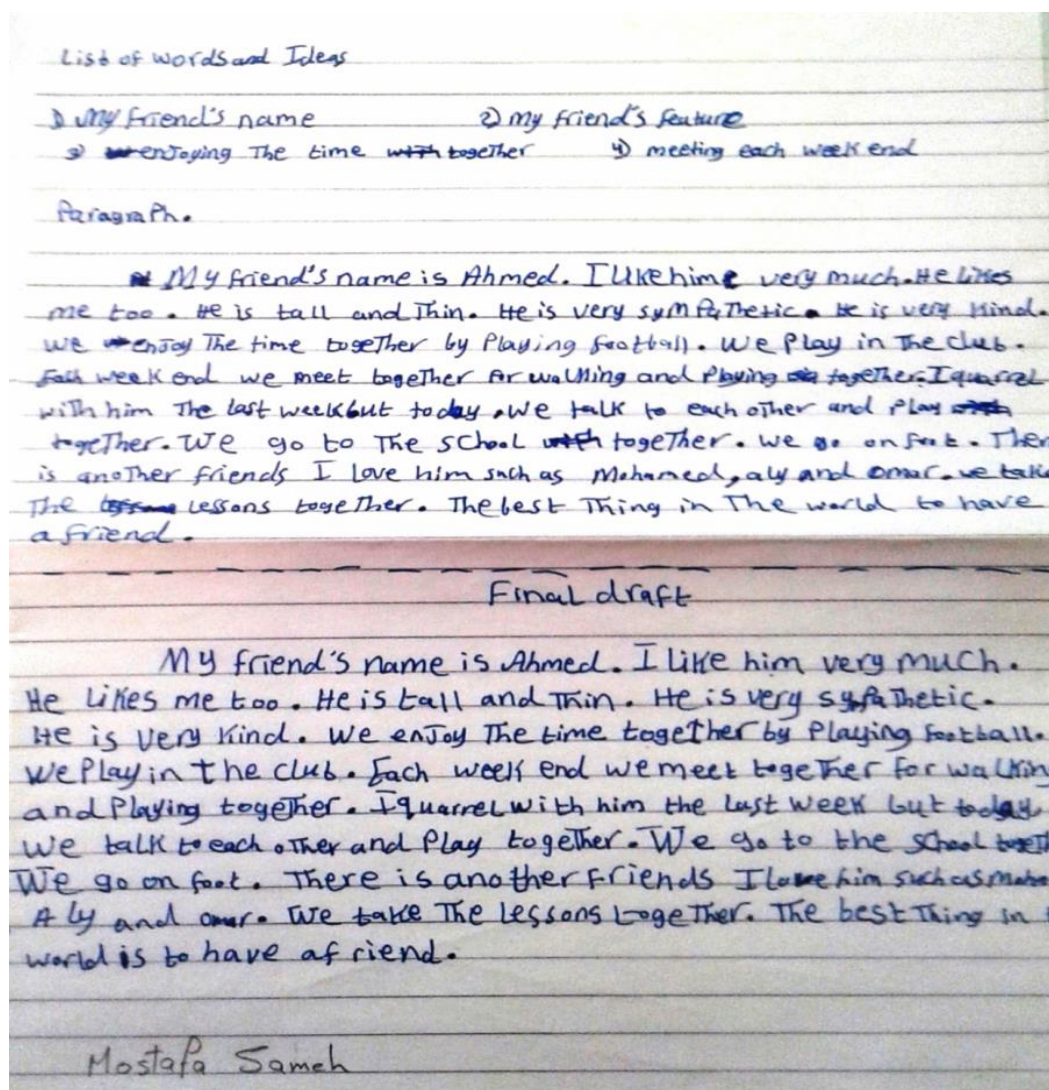 List of words and Ideas
1) My friend's name 2) my friend's feature
3) enjoying The time together 4) meeting each week end
Paragraph.
My friend's name is Ahmed. I like hime very much. He likes
me too. He is tall and Thin. He is very sympathetic. He is very kind.
We enjoy The time together by Playing football. We Play in The club.
Each week end we meet together for walking and Playing together. I quarrel
with him The last week but today. We talk to each other and Play
together. We go to The school together. We go on foot. Ther
is another friends I love him such as Mohamed, aly and omar. we take
The Lessons together. The best Thing in The world to have
a friend.
Final draft
My friend's name is Ahmed. I like him very much.
He likes me too. He is tall and Thin. He is very sypathetic.
He is very kind. We enjoy The time together by Playing football.
We Play in the club. Each week end we meet together for walkin
and Playing together. I quarrel with him the last week but today
We talk to each other and Play together. We go to the school togeth
We go on foot. There is another friends I love him such as Moha
Aly and omar. We take The Lessons together. The best Thing in
world is to have a friend.
Mostafa Sameh